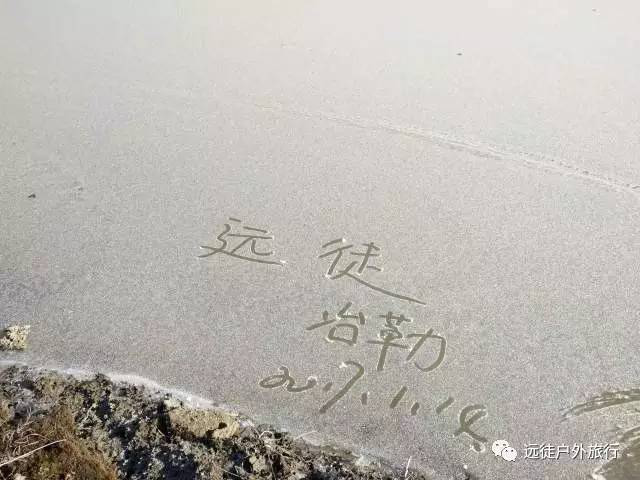 远徒
冶勒
2017.1.14
远徒户外旅行